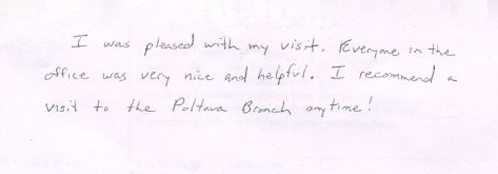 I was pleased with my visit. Everyone in the
office was very nice and helpful. I recommend a
visit to the Poltava Branch anytime!